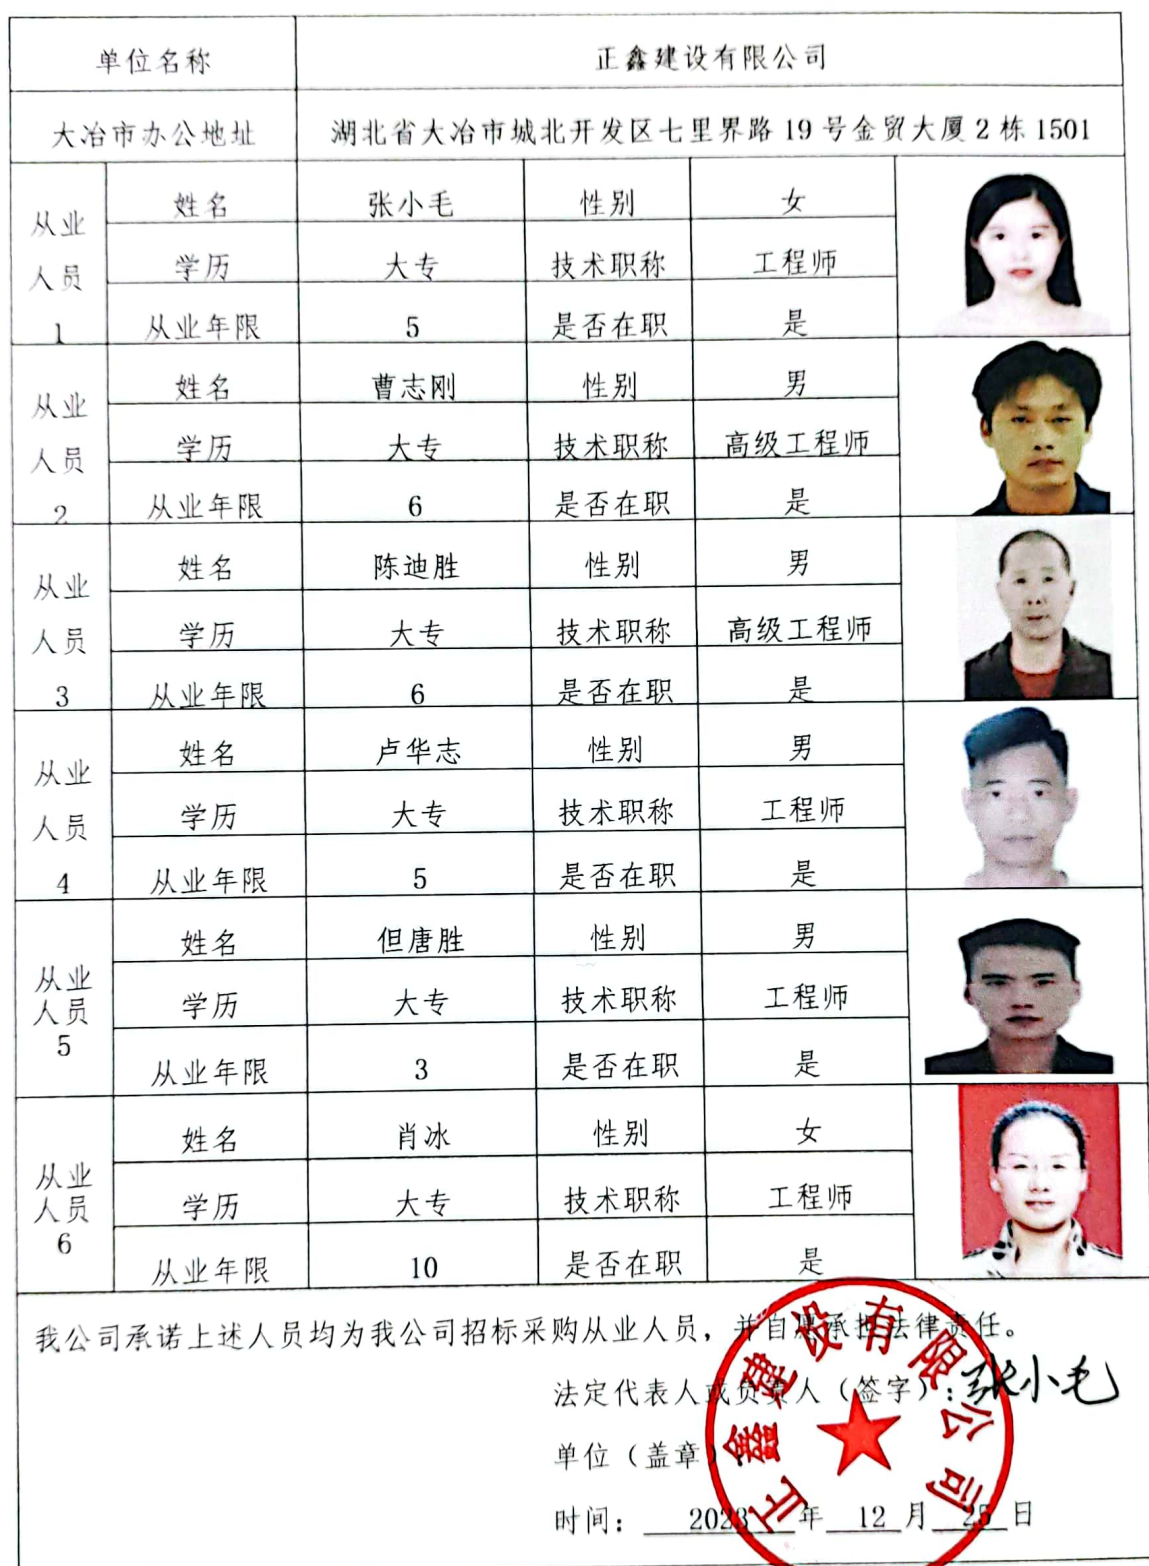 单位名称 正鑫建设有限公司
大冶市办公地址 湖北省大冶市城北开发区七里界路 19 号金贸大厦 2 栋 1501
从业人员1
姓名 张小毛 性别 女
学历 大专 技术职称 工程师
从业年限 5 是否在职 是
从业人员2
姓名 曹志刚 性别 男
学历 大专 技术职称 高级工程师
从业年限 6 是否在职 是
从业人员3
姓名 陈迪胜 性别 男
学历 大专 技术职称 高级工程师
从业年限 6 是否在职 是
从业人员4
姓名 卢华志 性别 男
学历 大专 技术职称 工程师
从业年限 5 是否在职 是
从业人员5
姓名 但唐胜 性别 男
学历 大专 技术职称 工程师
从业年限 3 是否在职 是
从业人员6
姓名 肖冰 性别 女
学历 大专 技术职称 工程师
从业年限 10 是否在职 是
我公司承诺上述人员均为我公司招标采购从业人员，并自愿承担法律责任。
法定代表人或负责人（签字）：张小毛
单位（盖章）：
时间： 2023 年 12 月 25 日
正鑫建设有限公司